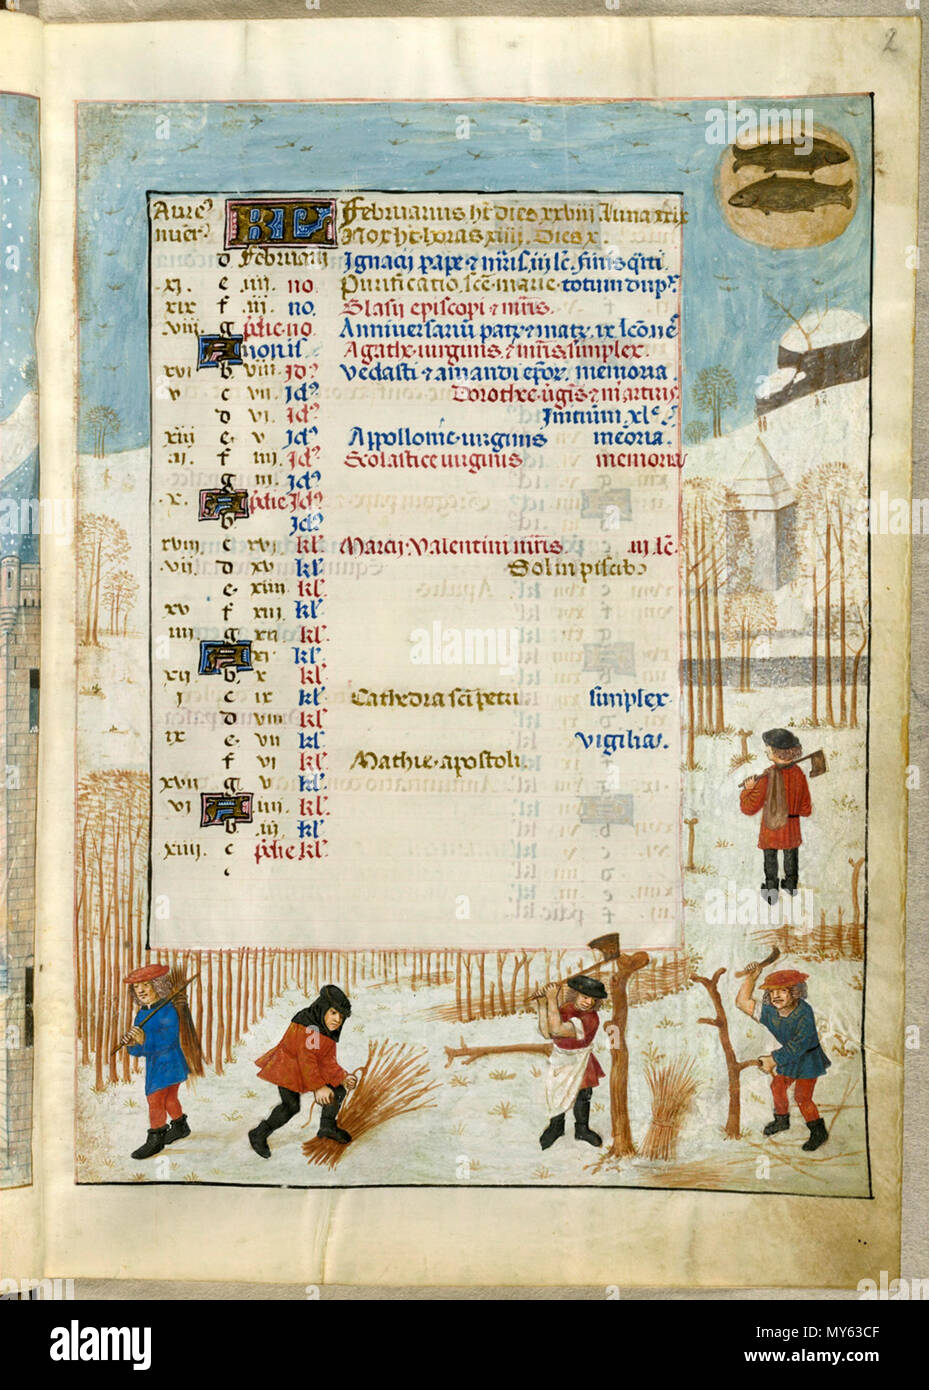 2
Aure⁹ KL Februarius ht dies xxviii luna xxix
nuer⁹ Nox ht horas xiiii. Dies x.
d Februarii Ignacii pape ⁊ mris. iii lc.
xi. e .iiii. no. Purificatio sce marie totum dup.
xix f .iii. no. Blasii episcopi ⁊ mris.
viii. g pdie no. Anniversariu patz ⁊ matz. ix lcone
A nonis Agathe virginis ⁊ mris simplex.
xvi b viii. Id⁹ Vedasti ⁊ amandi epor. memoria
v c vii. Id⁹ Dorothee vgis ⁊ martiris
d vi. Id⁹ Initium xl⁹
xiii e. v Id⁹ Appollonie virginis memoria.
ii. f iiii Id⁹ Scolastice virginis memoria
g iii. Id⁹
x. A pdie Id⁹
b. Id⁹
xviii c xvi kl. Marcii. Valentini mris iii lc.
vii. d xv kl. Sol in piscib⁹
e. xiiii kl.
xv f xiii kl.
iiii. g xii kl.
A xi. kl.
xii b. x kl.
i c ix kl Cathedra sci petri simplex
d viii kl
ix e. vii kl. vigilia.
f vi kl. Mathie apostoli.
xvii g v kl.
vi A iiii kl.
b iii. kl.
xiiii. c pdie kl.
alamy
Image ID: MY63CF
www.alamy.com